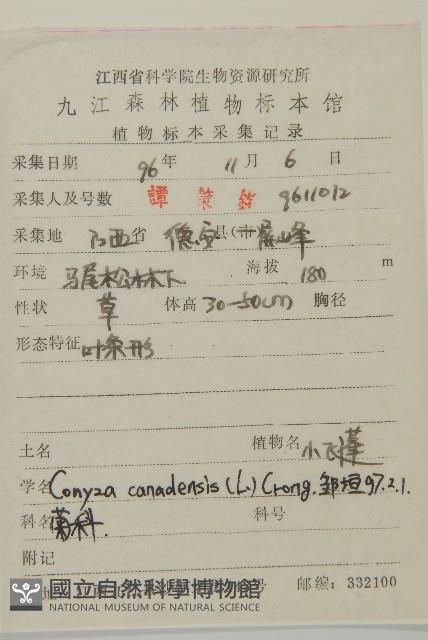 江西省科学院生物资源研究所
九江森林植物标本馆
植物标本采集记录
采集日期 96年 11月 6日
采集人及号数 譚策銘 9611012
采集地 江西省 德安县(市)屏峰
环境 马尾松林下 海拔 180 m
性状 草 体高 30-50cm 胸径
形态特征 叶条形
土名 植物名 小飞蓬
学名 Conyza canadensis (L.) Cronq. 邹垣 97.2.1.
科名 菊科. 科号
附记
邮编: 332100
國立自然科學博物館
NATIONAL MUSEUM OF NATURAL SCIENCE